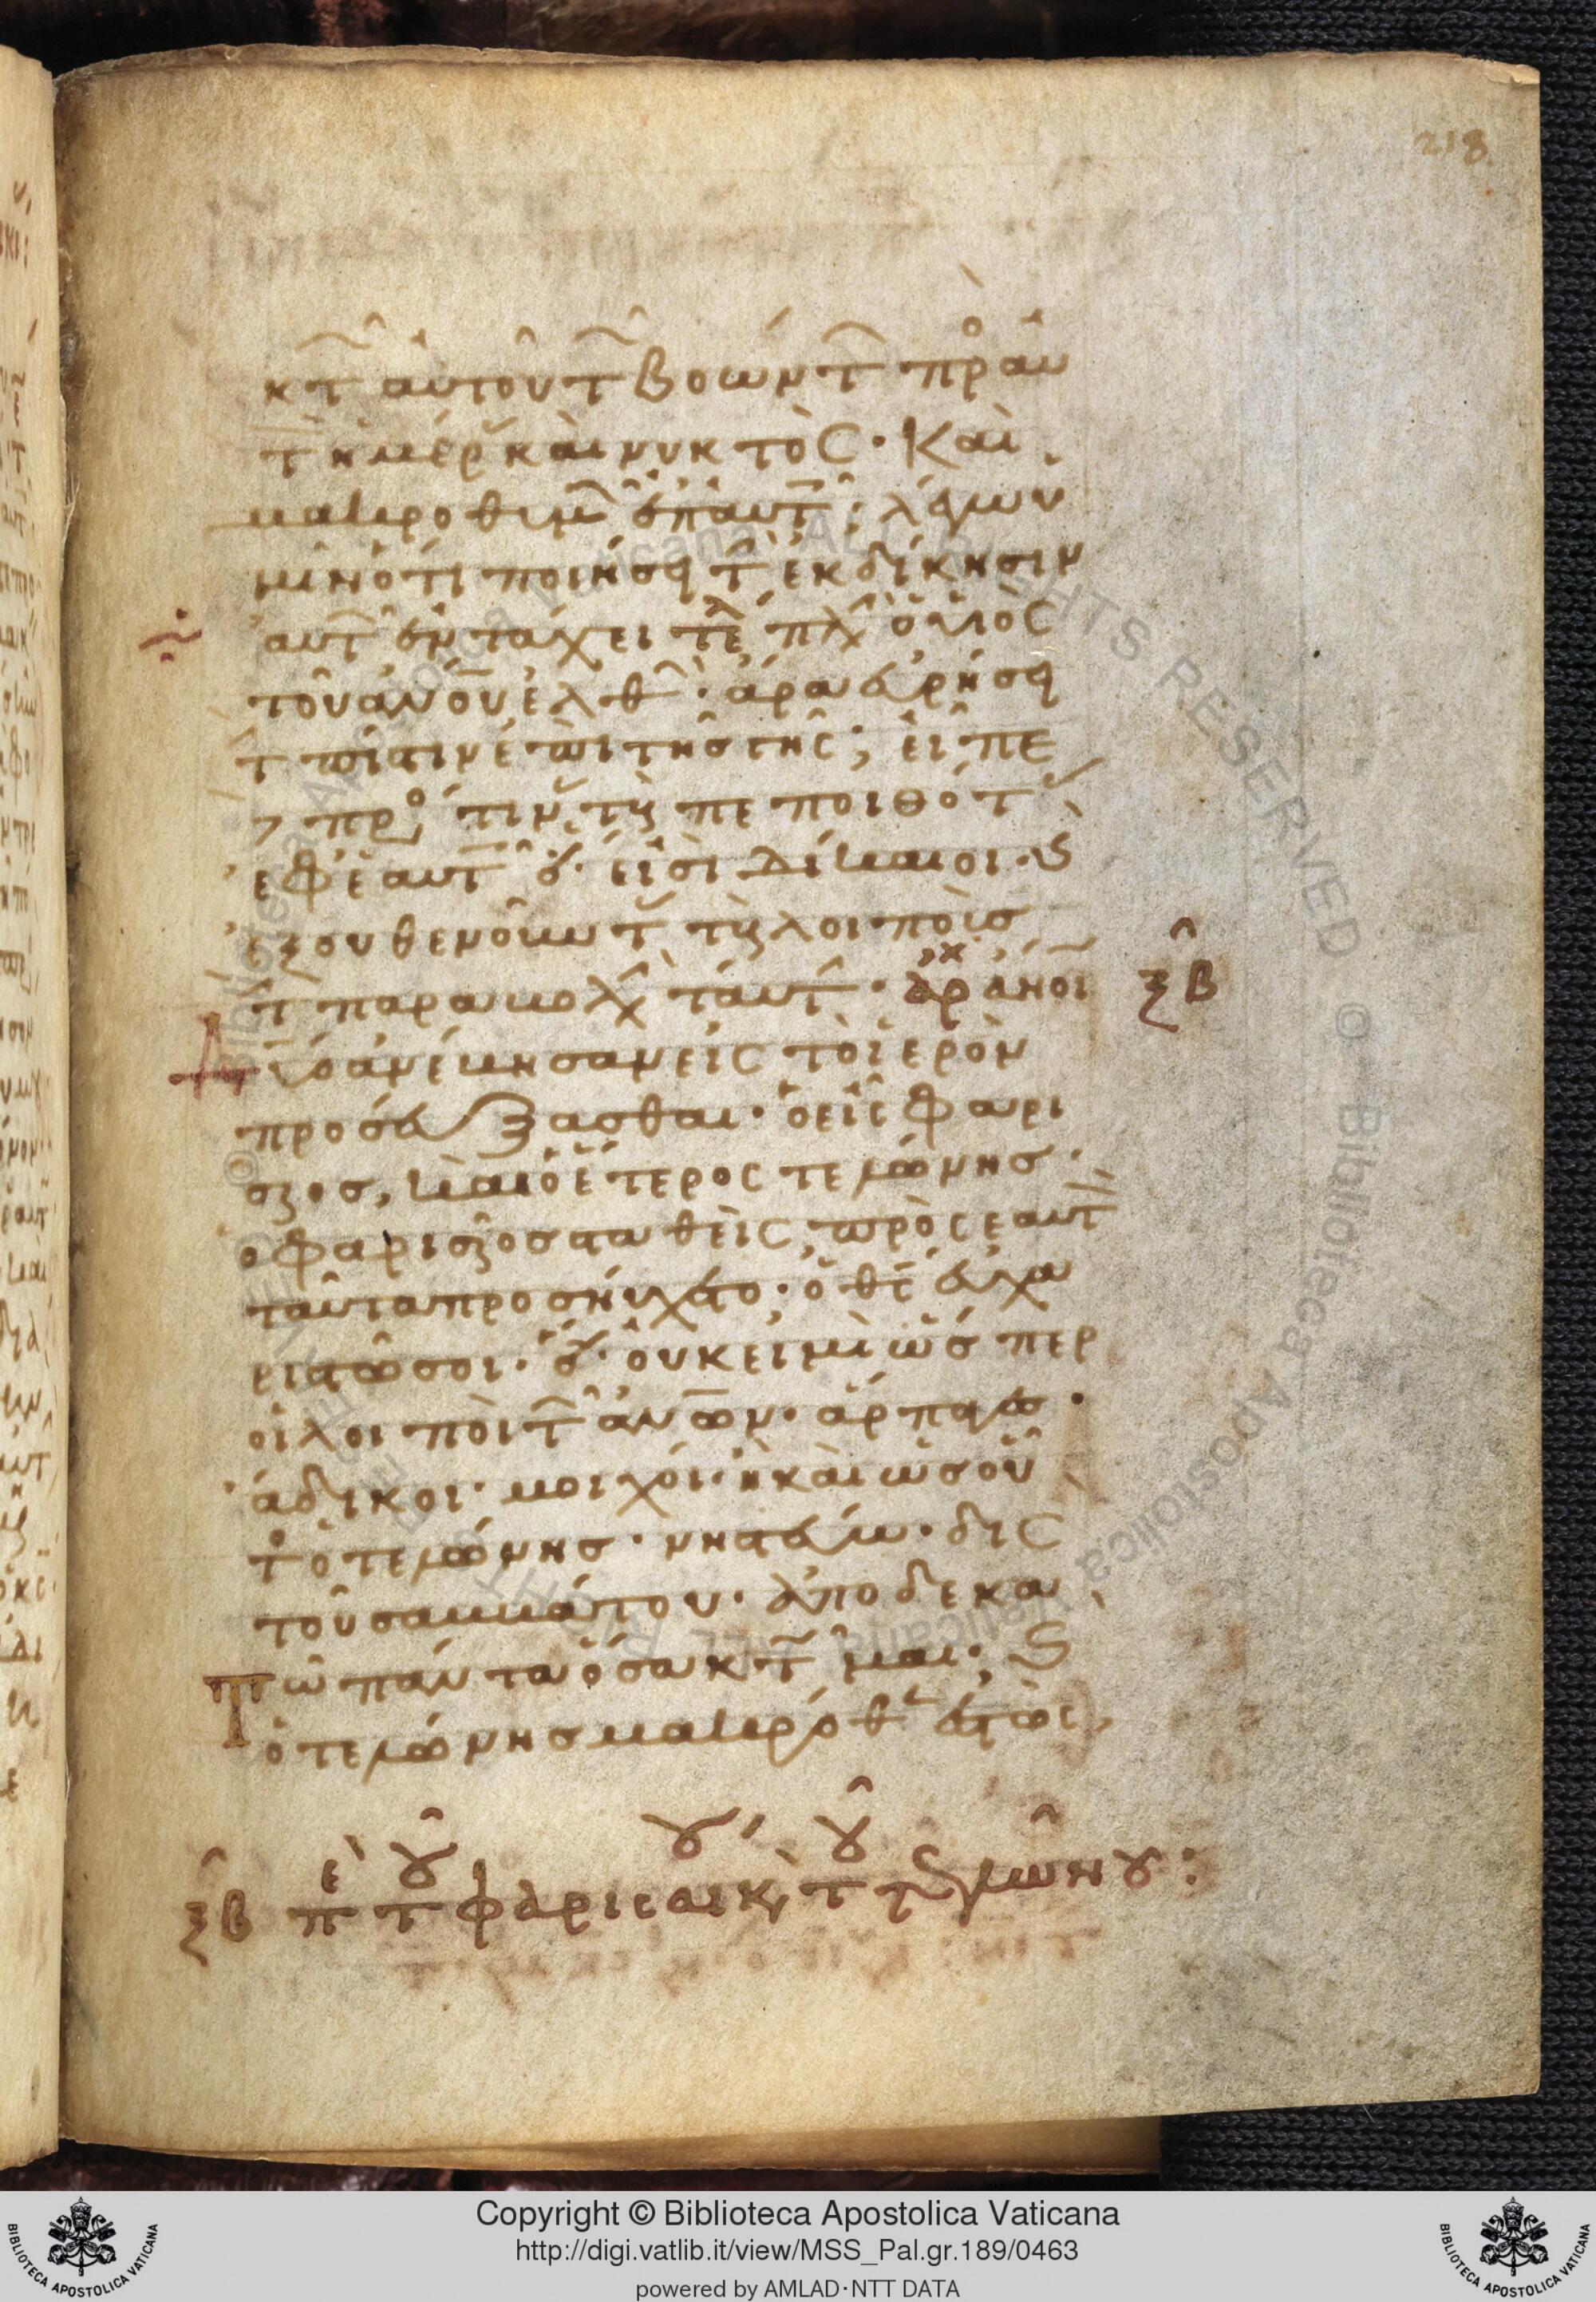 218
κτ αυτου τ βοωντ πρ αυ
τ ημερ και νυκτος · Και
μακροθυμ επ αυτ · λεγω υ
μιν οτι ποιησει τ εκδικησιν
αυτ εν ταχει τε πλ ο υιος
του ανου ελθ · αρα ευρησει
τ πιστιν επι της γης ; ειπε
πρ τιν τς πεποιθοτ
εφ εαυτ ο · εισι δικαιοι · S
εξουθενουντ τς λοιποις
τ παραβολ ταυτ · αρχ ανοι
Α
ξβ
νο ανεβησαν εις το ιερον
προσευξασθαι · ο εις φαρι
σαιος, και ο ετερος τελωνης ·
ο φαρισαιος σταθεις προς εαυτ
ταυτα προσηυχετο · ο θς ευχα
ριστω σοι · ο · ουκ ειμι ωσπερ
οι λοιποι τ ανων · αρπαγες ·
αδικοι · μοιχοι · η και ως ου
τ ο τελωνης · νηστευω · δις
του σαββατου · αποδεκα
τω παντα οσα κτ μαι · S
Τ
ο τελωνης μακροθ εστως
ξβ πε του φαρισαιου κ του τελωνου :
Copyright © Biblioteca Apostolica Vaticana
http://digi.vatlib.it/view/MSS_Pal.gr.189/0463
powered by AMLAD·NTT DATA
BIBLIOTECA APOSTOLICA VATICANA
BIBLIOTECA APOSTOLICA VATICANA
© Biblioteca Apostolica Vaticana ALL RIGHTS RESERVED